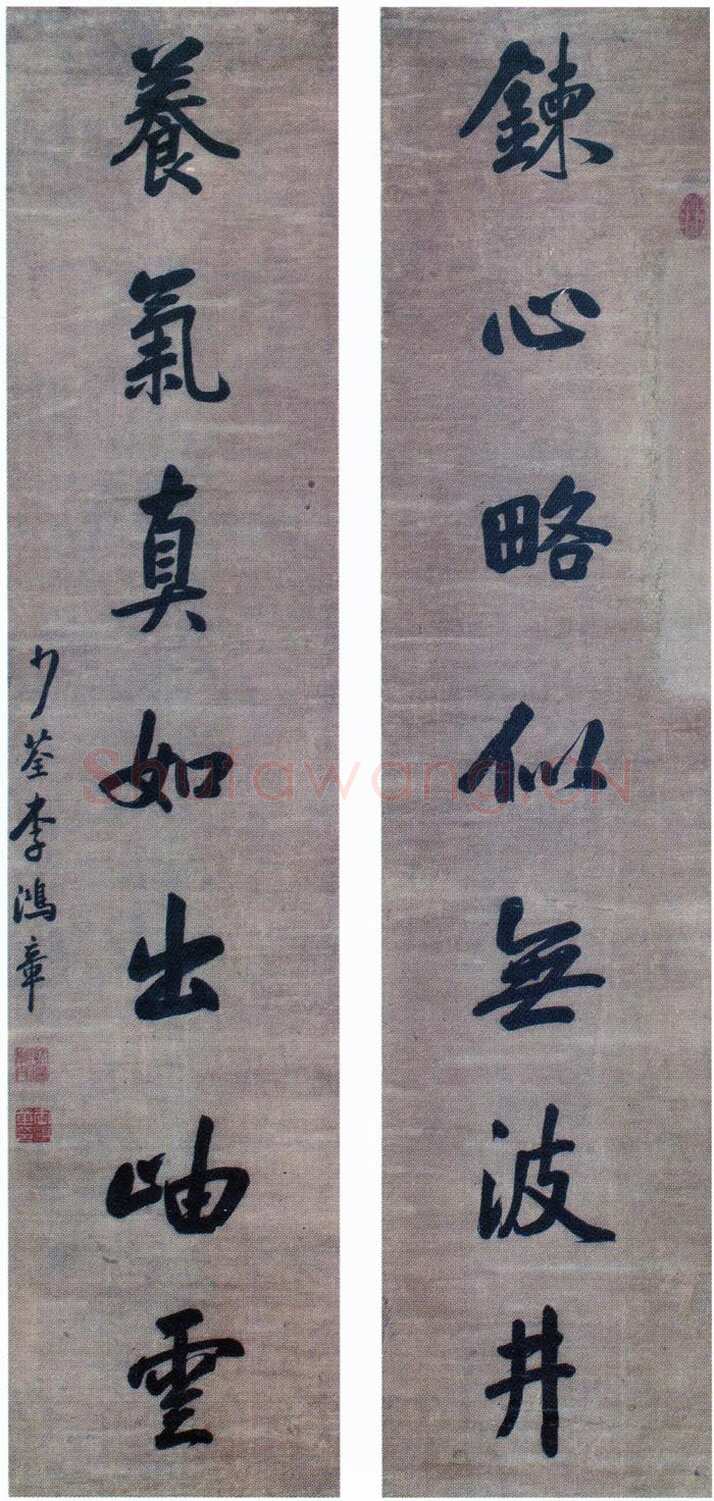 鍊心略似無波井
養氣真如出岫雲
少荃李鴻章
Shufawang.CN